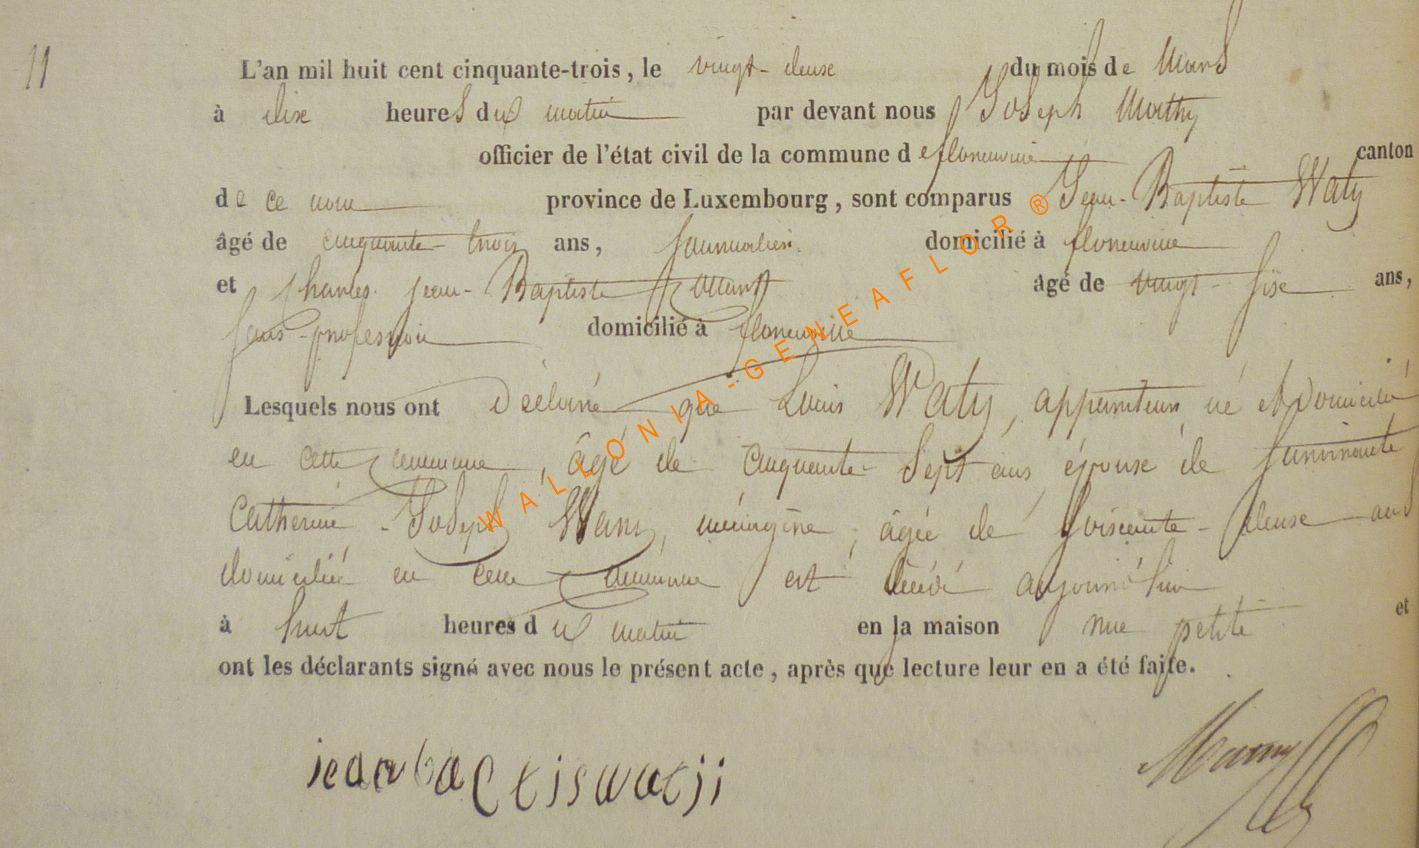 11
L'an mil huit cent cinquante-trois, le vingt-deuse du mois de Mars
à dixe heures du matin par devant nous Joseph Mathy
officier de l'état civil de la commune de florenville canton
de ce nom province de Luxembourg, sont comparus Jean-Baptiste Waty
âgé de cinquante-trois ans, journalier domicilié à florenville
et Charles jean-Baptiste âgé de vingt-sixe ans,
sans-profession domicilié à florenville
Lesquels nous ont déclaré que Louis Waty, appariteur, né et domicilié
en cette commune, âgé de cinquante-sept ans, épouse de
Catherine-Joseph ménagère, âgée de soixante-deuse ans
domiciliée en cette commune est décédé aujourd'hui
à huit heures du matin en la maison rue petite et
ont les déclarants signé avec nous le présent acte, après que lecture leur en a été faite.
jean baptis watji
WALLONIA-GENEAFLOR®